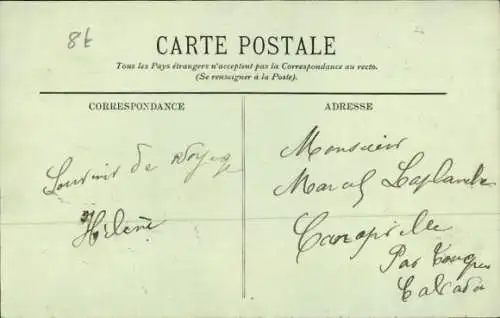 8t
CARTE POSTALE
Tous les Pays étrangers n'acceptent pas la Correspondance au recto.
(Se renseigner à la Poste).
CORRESPONDANCE
ADRESSE
Souvenir de voyage
Hélène
Monsieur
Marcel Laplanche
Canapville
Par Touques
Calvados